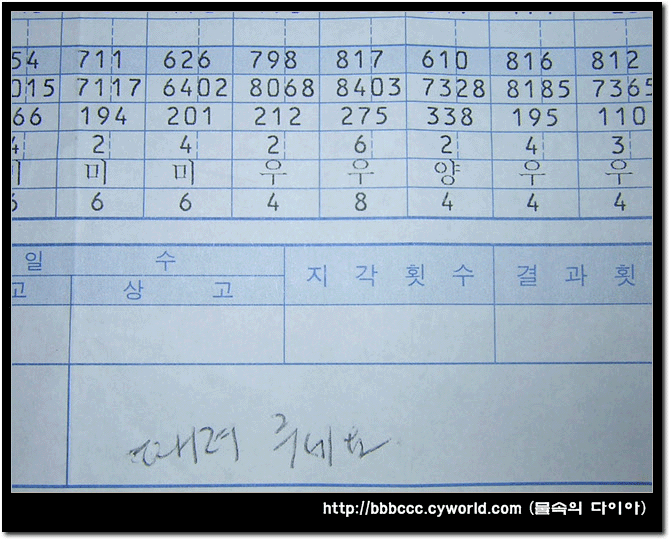 54 711 626 798 817 610 816 812
015 7117 6402 8068 8403 7328 8185 7365
66 194 201 212 275 338 195 110
4 2 4 2 6 2 4 3
미 미 우 우 양 우 우
6 6 6 4 8 4 4 4
일 수 지 각 횟 수 결 과 횟
고 상 고
때려 주세요
http://bbbccc.cyworld.com (돌속의 다이아)